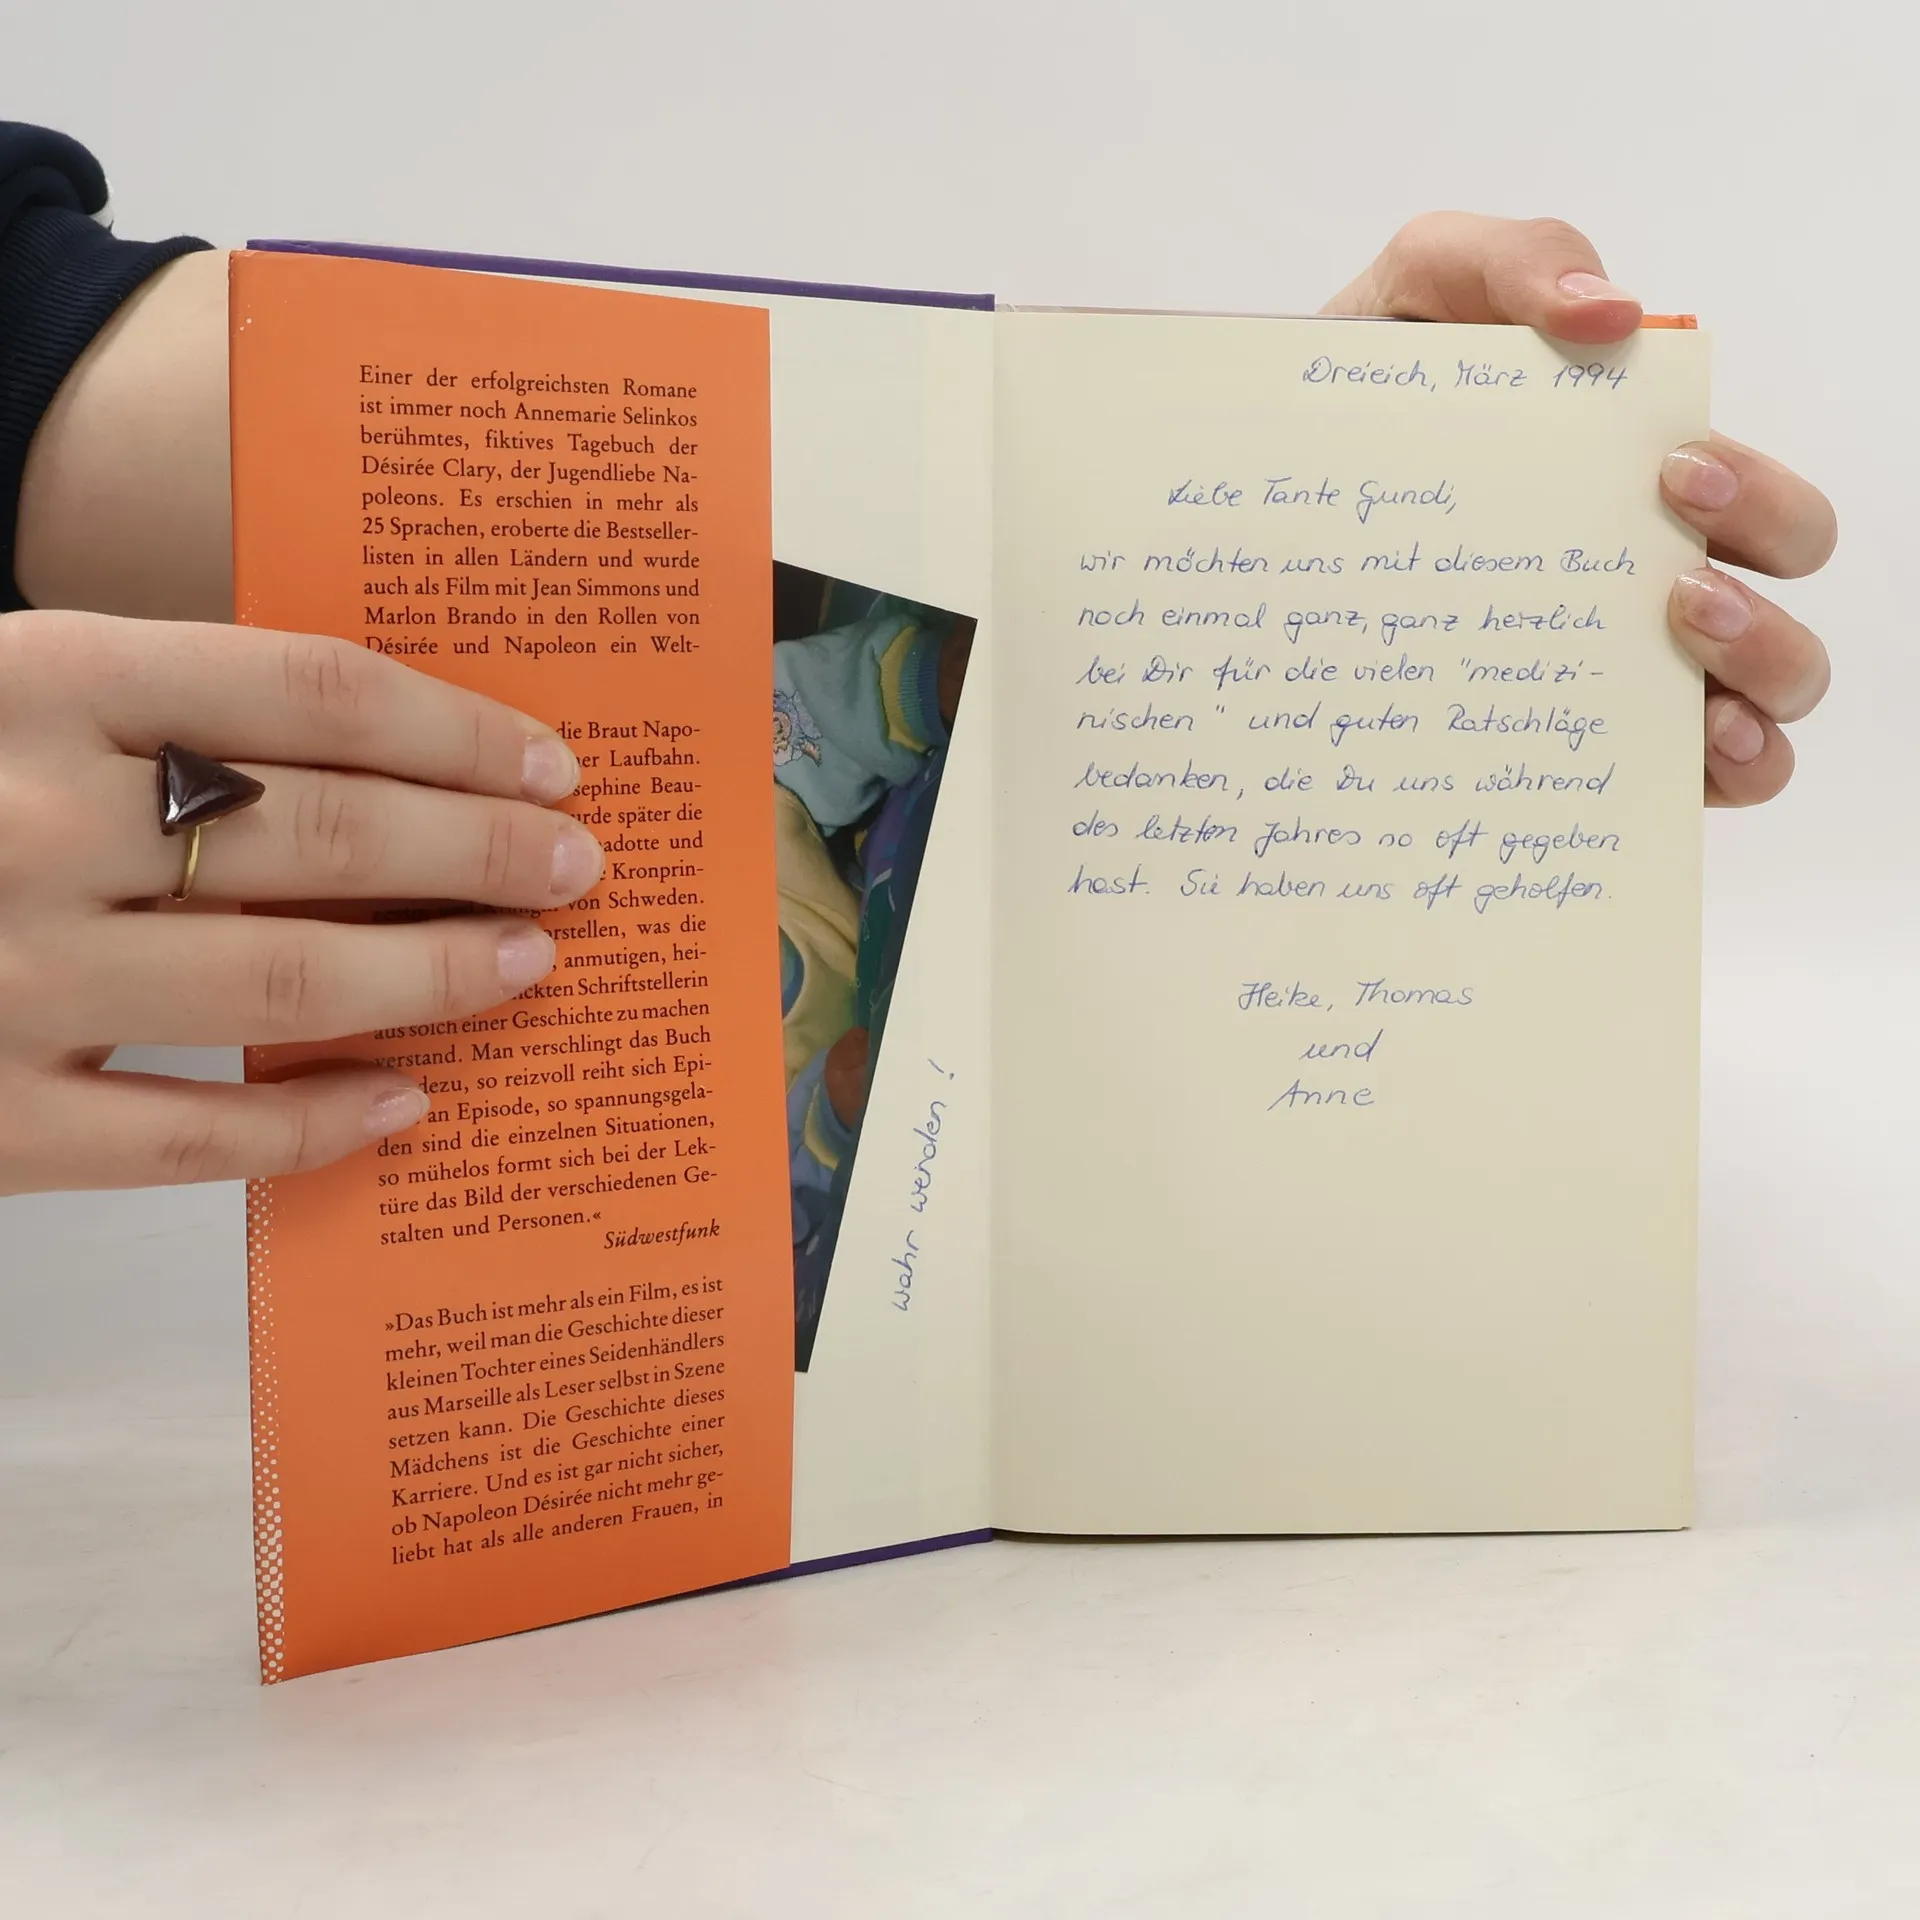 Einer der erfolgreichsten Romane
ist immer noch Annemarie Selinkos
berühmtes, fiktives Tagebuch der
Désirée Clary, der Jugendliebe Na-
poleons. Es erschien in mehr als
25 Sprachen, eroberte die Bestseller-
listen in allen Ländern und wurde
auch als Film mit Jean Simmons und
Marlon Brando in den Rollen von
Désirée und Napoleon ein Welt-
die Braut Napo-
Laufbahn.
Beau-
später die
und
Kronprin-
von Schweden.
was die
anmutigen, hei-
Schriftstellerin
aus solch einer Geschichte zu machen
verstand. Man verschlingt das Buch
so reizvoll reiht sich Epi-
an Episode, so spannungsgela-
den sind die einzelnen Situationen,
so mühelos formt sich bei der Lek-
türe das Bild der verschiedenen Ge-
stalten und Personen.«
Südwestfunk
»Das Buch ist mehr als ein Film, es ist
mehr, weil man die Geschichte dieser
kleinen Tochter eines Seidenhändlers
aus Marseille als Leser selbst in Szene
setzen kann. Die Geschichte dieses
Mädchens ist die Geschichte einer
Karriere. Und es ist gar nicht sicher,
ob Napoleon Désirée nicht mehr ge-
liebt hat als alle anderen Frauen, in
wenden!
Dreieich, März 1994
Liebe Tante Gundi,
wir möchten uns mit diesem Buch
noch einmal ganz, ganz herzlich
bei Dir für die vielen "medizi-
nischen" und guten Ratschläge
bedanken, die Du uns während
des letzten Jahres so oft gegeben
hast. Sie haben uns oft geholfen.
Heike, Thomas
und
Anne